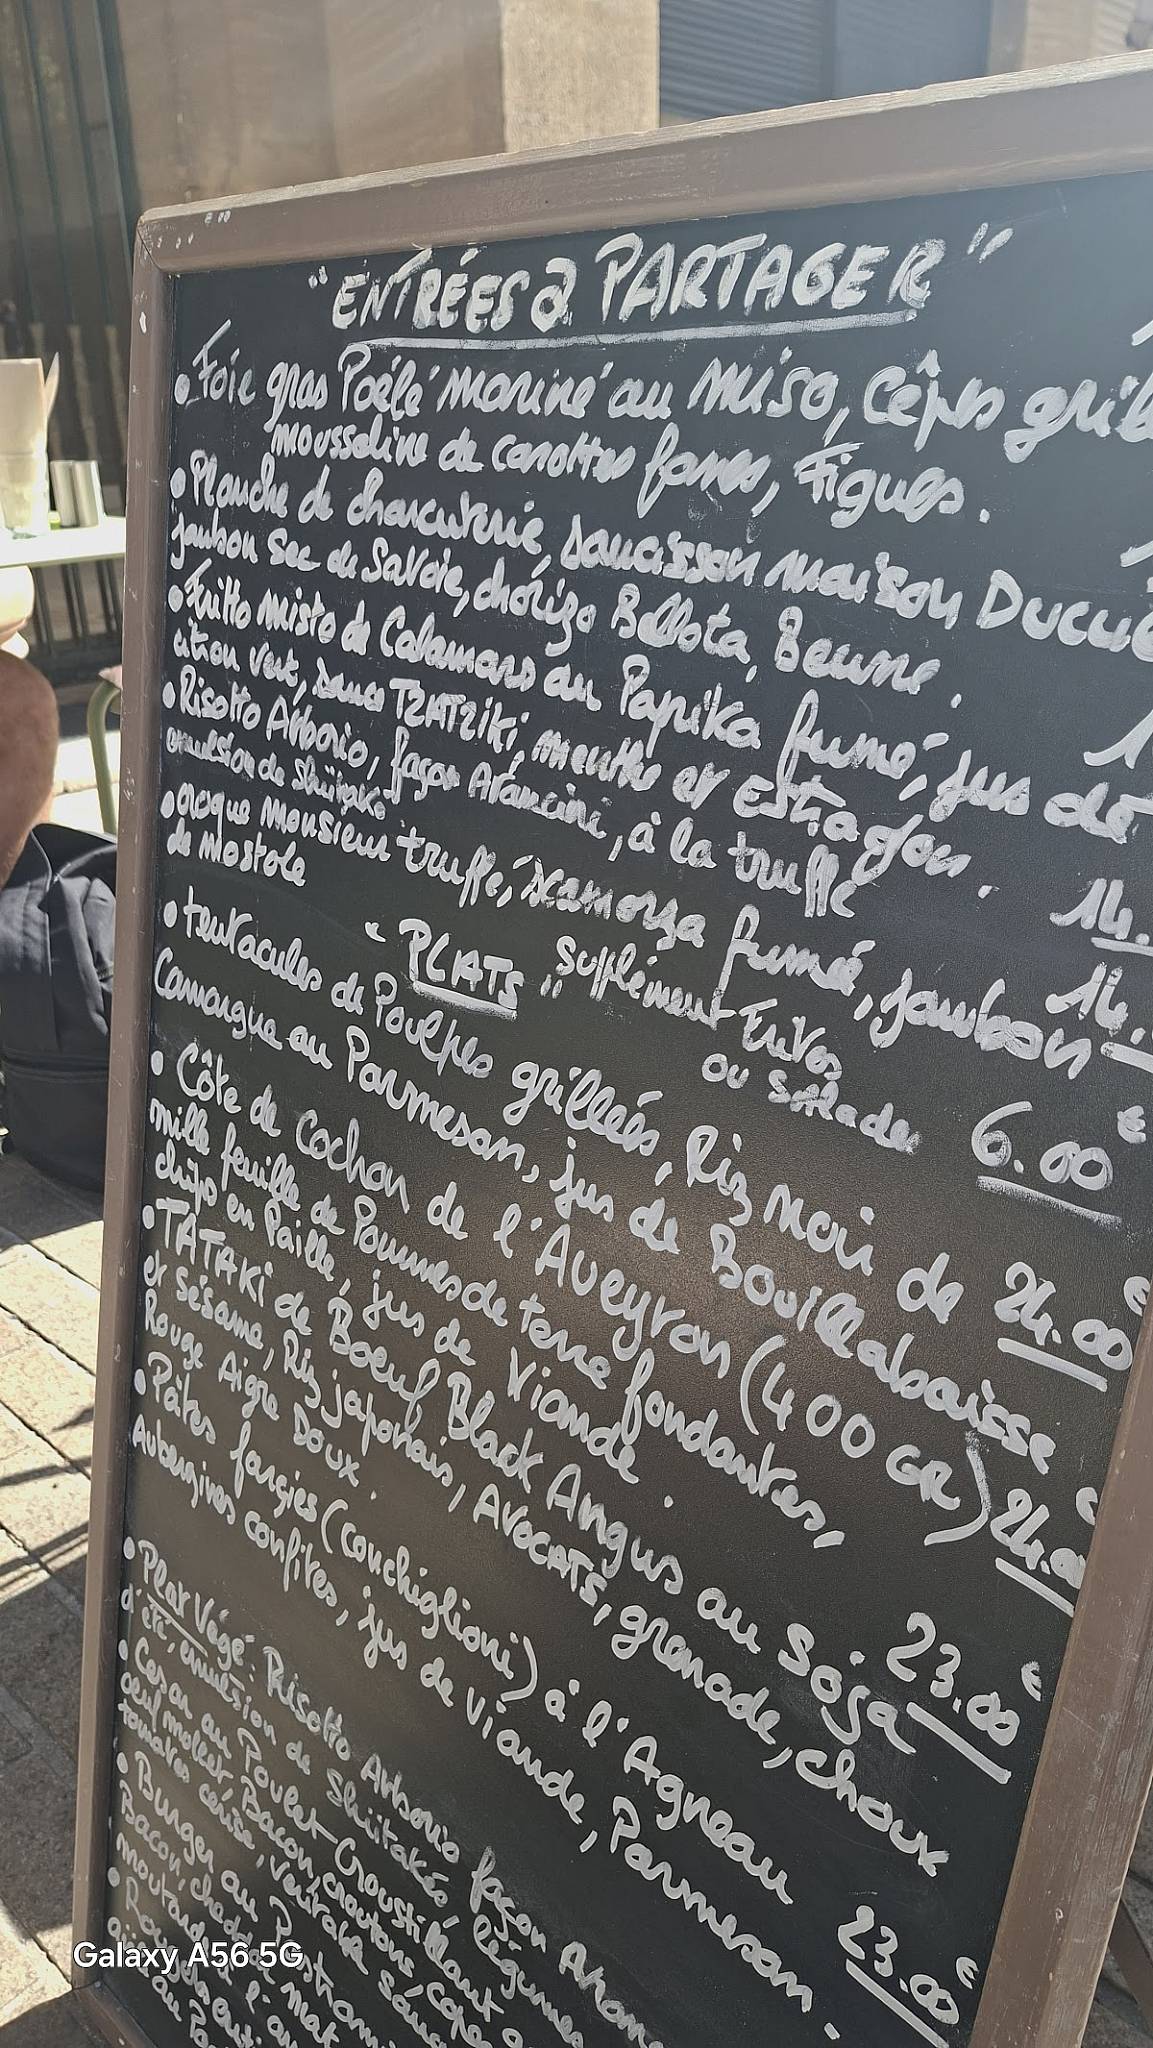 "ENTRÉES à PARTAGER"
• Foie gras Poêlé mariné au miso, Cêpes grill
mousseline de carottes fanes, Figues.
• Planche de charcuterie, saucisson maison Ducu
jambon sec de Savoie, chorizo Bellota, Beurre.
• Fritto misto de Calamars au Paprika fumé, jus de
citron vert, sauce TZATZIKI, menthe et Estragon.
• Risotto Arborio, façon Arancini, à la truffe
émulsion de shiitaké 14.
• croque monsieur truffé, scamorza fumée, jambon
de mostole 14.
"PLATS" Supplément Frites
ou Salade 6.00 €
• tentacules de Poulpes grillées, Riz noir de
Camargue au Parmesan, jus de Bouillabaisse 24.00 €
• Côte de Cochon de l'Aveyron (400 GR)
mille feuille de Pommes de terre fondantes, 24.0 €
chips en Paille, jus de Viande.
• TATAKI de Boeuf Black Angus au Soja
et sésame, Riz japonais, AVOCATS, grenade, choux
Rouge Aigre Doux. 23.00 €
• Pâtes farçies (Conchiglioni) à l'Agneau
Aubergines confites, jus de Viande, Parmesan. 23.00 €
• Plat Végé: Risotto Arborio façon
d'été, émulsion de Shiitaké, légumes
• Cesar au Poulet Croustillant
oeuf mollet, Bacon, croutons,
tomates cerise, véritable
• Burger au Pastrami
Bacon, cheddar
moutarde à l'
Galaxy A56 5G